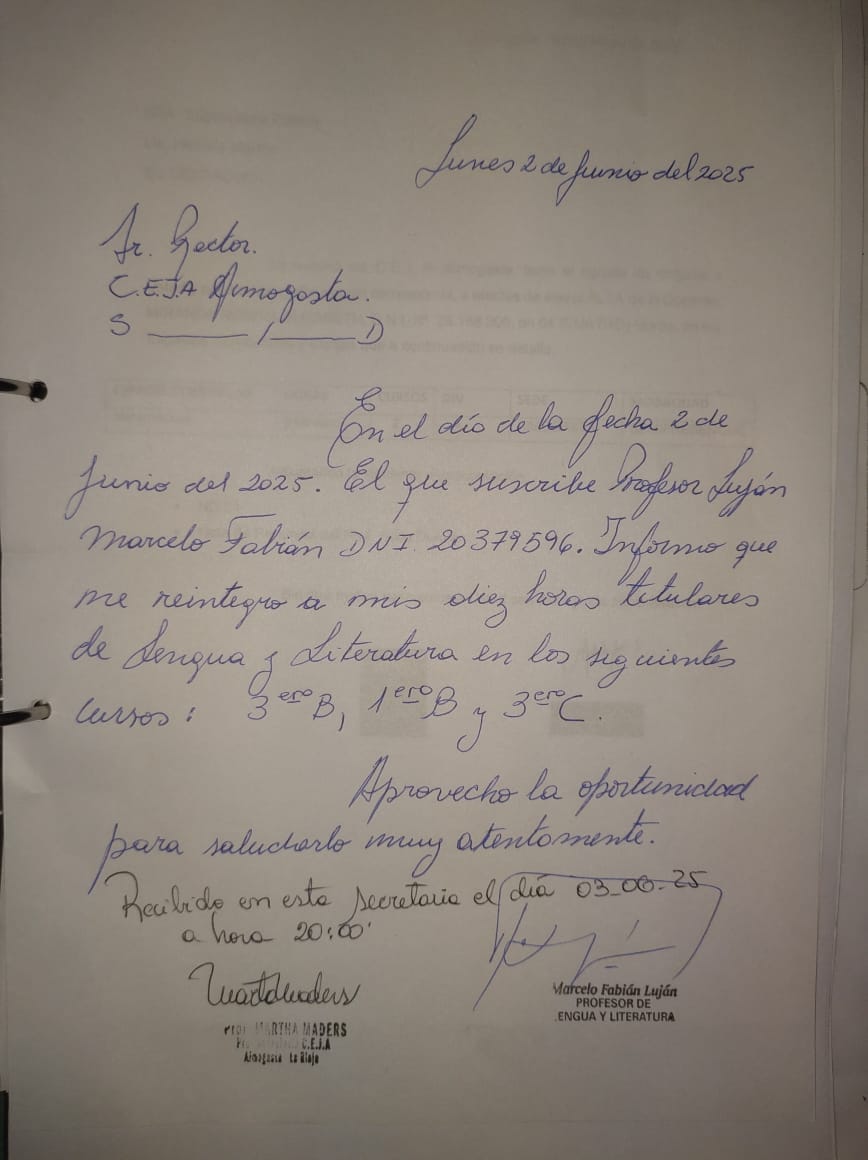 Lunes 2 de Junio del 2025
Sr. Rector.
C.E.J.A Aimogasta.
S ______ / ______ D
En el día de la fecha 2 de
Junio del 2025. El que suscribe Profesor Luján
Marcelo Fabián DNI. 20379596. Informo que
me reintegro a mis diez horas titulares
de Lengua y Literatura en los siguientes
cursos: 3ero B, 1ero B y 3ero C.
Aprovecho la oportunidad
para saludarlo muy atentamente.
Recibido en esta secretaria el día 03-06-25
a hora 20:00'
Marcelo Fabián Luján
PROFESOR DE
ENGUA Y LITERATURA
MARTHA MADERS
C.E.J.A
Aimogasta La Rioja